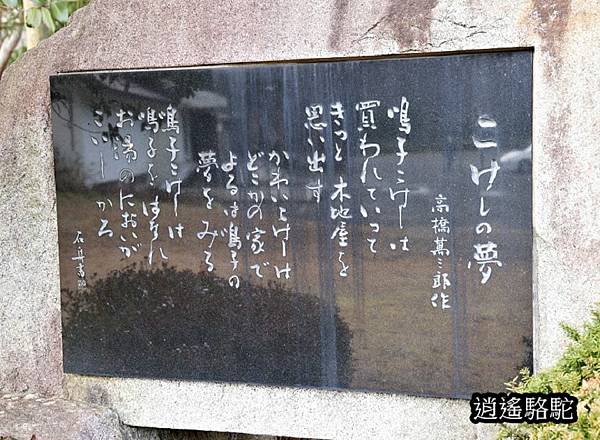 こけしの夢
高橋甚三郎作
鳴子こけしは
買われていって
きっと 木地屋を
思い出す
かわいいこけしは
どこかの家で
よるは鳴子の
夢をみる
鳴子こけしは
鳴子をはなれ
お湯のにおいが
こいしかろ
逍遙駱駝